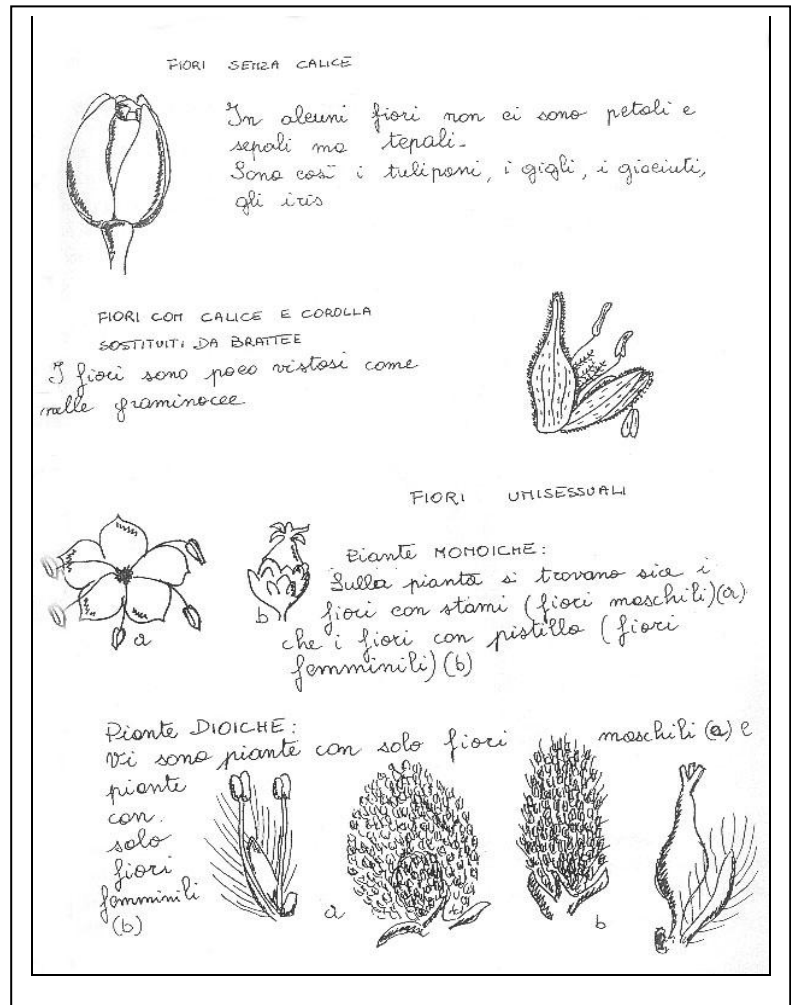 FIORI SENZA CALICE
In alcuni fiori non ci sono petali e
sepali ma tepali.
Sono così i tuliponi, i gigli, i giaciuti,
gli iris
FIORI CON CALICE E COROLLA
SOSTITUITI DA BRATTEE
I fiori sono poco vistosi come
nelle graminacee
FIORI UNISESSUALI
Piante MONOICHE:
Sulla pianta si trovano sia i
fiori con stami (fiori maschili)(a)
che i fiori con pistillo (fiori
femminili)(b)
a
b
Piante DIOICHE:
Vi sono piante con solo fiori maschili (a) e
piante
con
solo
fiori
femminili
(b)
a
b